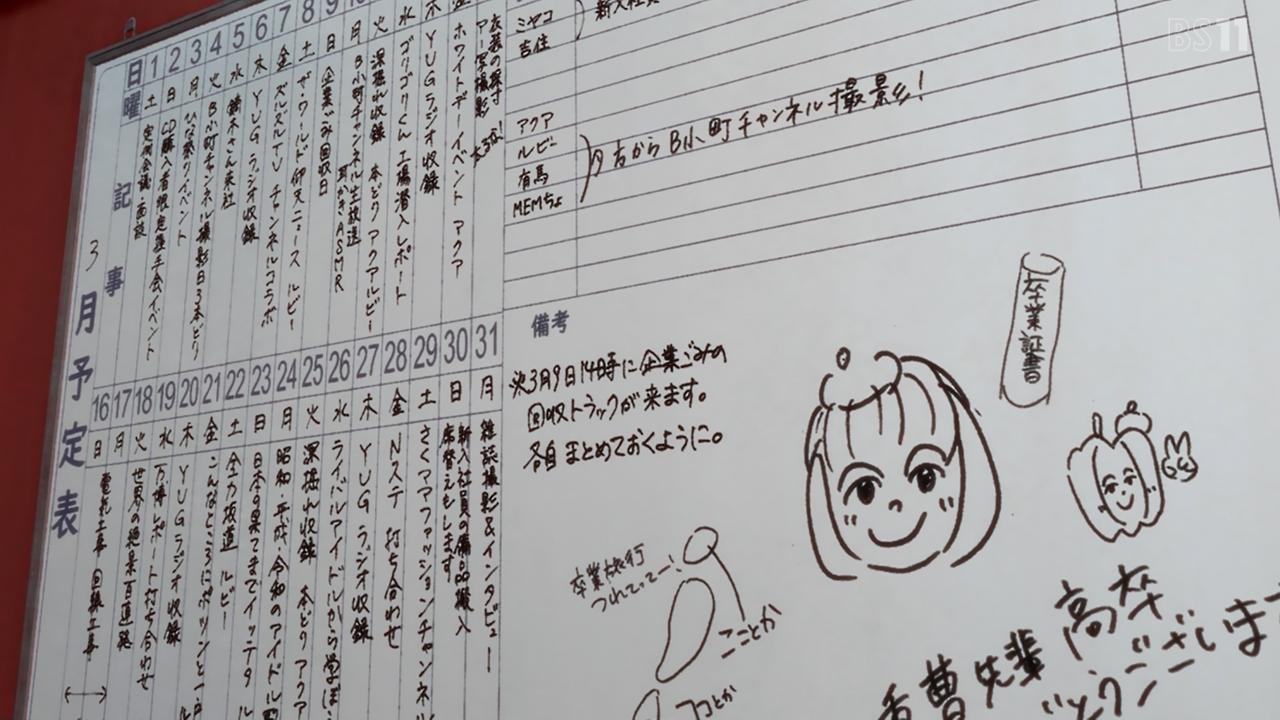 BS11
3月予定表
日 曜 記事
1 土 定例会議・面談
2 日 CD購入者限定握手会イベント
3 月 ひな祭りイベント
4 火 B小町チャンネル撮影日3本どり
5 水 鏑木さん来社
6 木 YUGラジオ収録
7 金 ズルズルTVチャンネルコラボ
8 土 ザ・ワールド仰天ニュース ルビー
9 日 企業ごみ回収日
月 B小町チャンネル生放送 耳かきASMR
火 深掘れ収録 本どり アクアルビー
水 ゴリゴリくん工場潜入レポート
木 YUGラジオ収録
ホワイトデーイベント アクア
衣装の採寸
アー写撮影
16 日 電気工事 回線工事
17 月
18 火 世界の絶景百連発
19 水 万博レポート打ち合わせ
20 木 YUGラジオ収録
21 金 こんなところにポツンと一
22 土 全力坂道 ルビー
23 日 日本の果てまでイッテタ
24 月 昭和・平成・令和のアイドル
25 火 深掘れ収録 本どり アクア
26 水 ライバルアイドルから学ぼ
27 木 YUGラジオ収録
28 金 Nステ 打ち合わせ
29 土 さくアファッションチャンネ
30 日 新入社員の備品搬入
席替えもします
31 月 雑誌撮影&インタビュー
ミヤコ
吉住
新入社員
アクア
ルビー
有馬
MEMちょ
夕方からB小町チャンネル撮影!
備考
※3月9日14時に企業ごみの
回収トラックが来ます。
各自まとめておくように。
卒業証書
卒業旅行
つれてってー!
こことか
ココとか
先輩 高卒
ございます